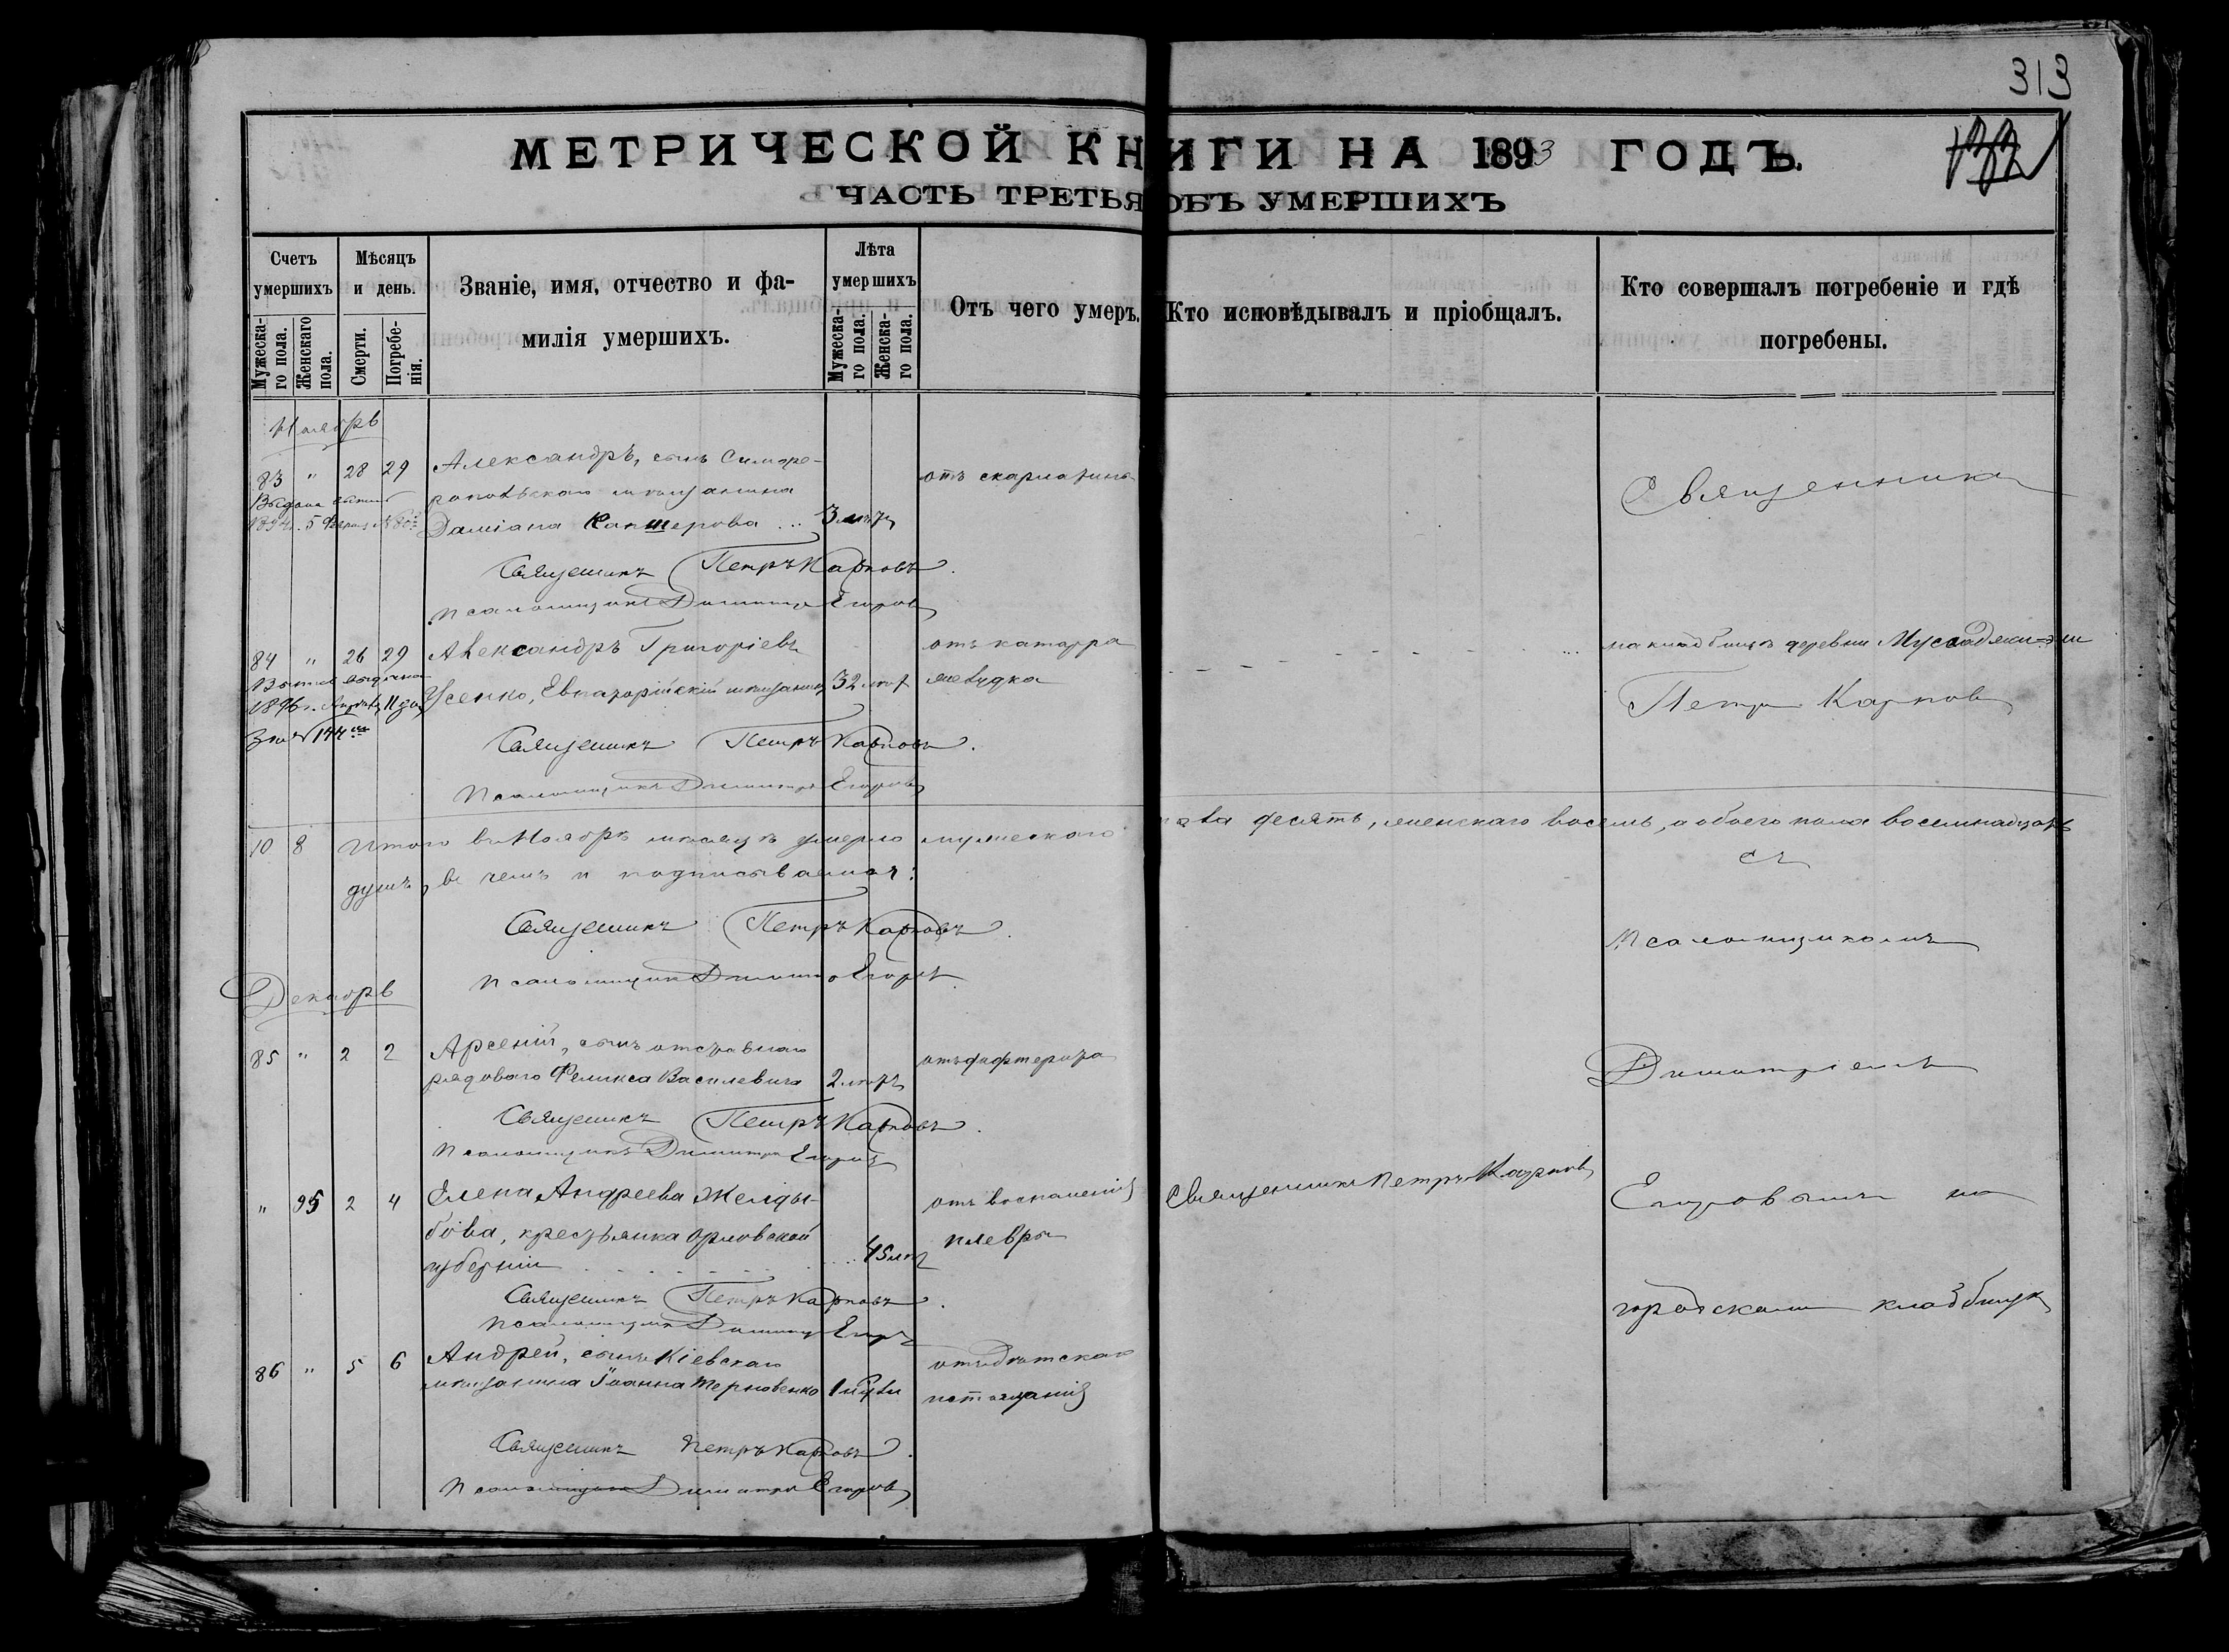 313
МЕТРИЧЕСКОЙ КНИГИ НА 1893 ГОДЪ.
ЧАСТЬ ТРЕТЬЯ ОБЪ УМЕРШИХЪ
Счетъ умершихъ
Мужеска-
го пола.
Женскаго
пола.
Мѣсяцъ
и день.
Смерти.
Погребе-
нія.
Званіе, имя, отчество и фа-
милія умершихъ.
Лѣта
умершихъ
Мужеска-
го пола.
Женска-
го пола.
Отъ чего умеръ.
Кто исповѣдывалъ и пріобщалъ.
Кто совершалъ погребеніе и гдѣ
погребены.
Ноябрь
83 " 28 29 Александръ, сынъ Симфе-
ропольскаго мѣщанина
Даміана 3 лѣтъ
отъ скарлатины
Священникъ
Священникъ Петръ Карповъ.
Псаломщикъ Димитрій Егоровъ
84 " 26 29 Александръ Григоріевъ
Усенко, Евпаторійскій мѣщанинъ 32 лѣт
отъ катарра
желудка
на кладбищѣ деревни
Петръ Карповъ
Священникъ Петръ Карповъ.
Псаломщикъ Димитрій Егоровъ
10 8 Итого въ Ноябрѣ мѣсяцѣ умерло мужескаго пола десять, женскаго восемь, а обоего пола восемнадцать
душъ, въ чемъ и подписываемся:
съ
Священникъ Петръ Карповъ.
Псаломщикъ Димитрій Егоровъ
Псаломщикомъ
Декабрь
85 " 2 2 Арсеній, сынъ отставнаго
рядоваго Феликса Василевича 2 лѣтъ
отъ дифтерита
Димитріемъ
Священникъ Петръ Карповъ.
Псаломщикъ Димитрій Егоровъ
" 95 2 4 Елена Андреева
бова, крестьянка Орловской
губерніи 45 лѣт
отъ воспаленія
плевры
Священникъ Петръ Карповъ
Егоровымъ на
Священникъ Петръ Карповъ.
Псаломщикъ Димитрій Егоровъ
городскомъ кладбищѣ
86 " 5 6 Андрей, сынъ Кіевскаго
мѣщанина Іоанна Терновенко
отъ дѣтскаго
истощанія
Священникъ Петръ Карповъ.
Псаломщикъ Димитрій Егоровъ